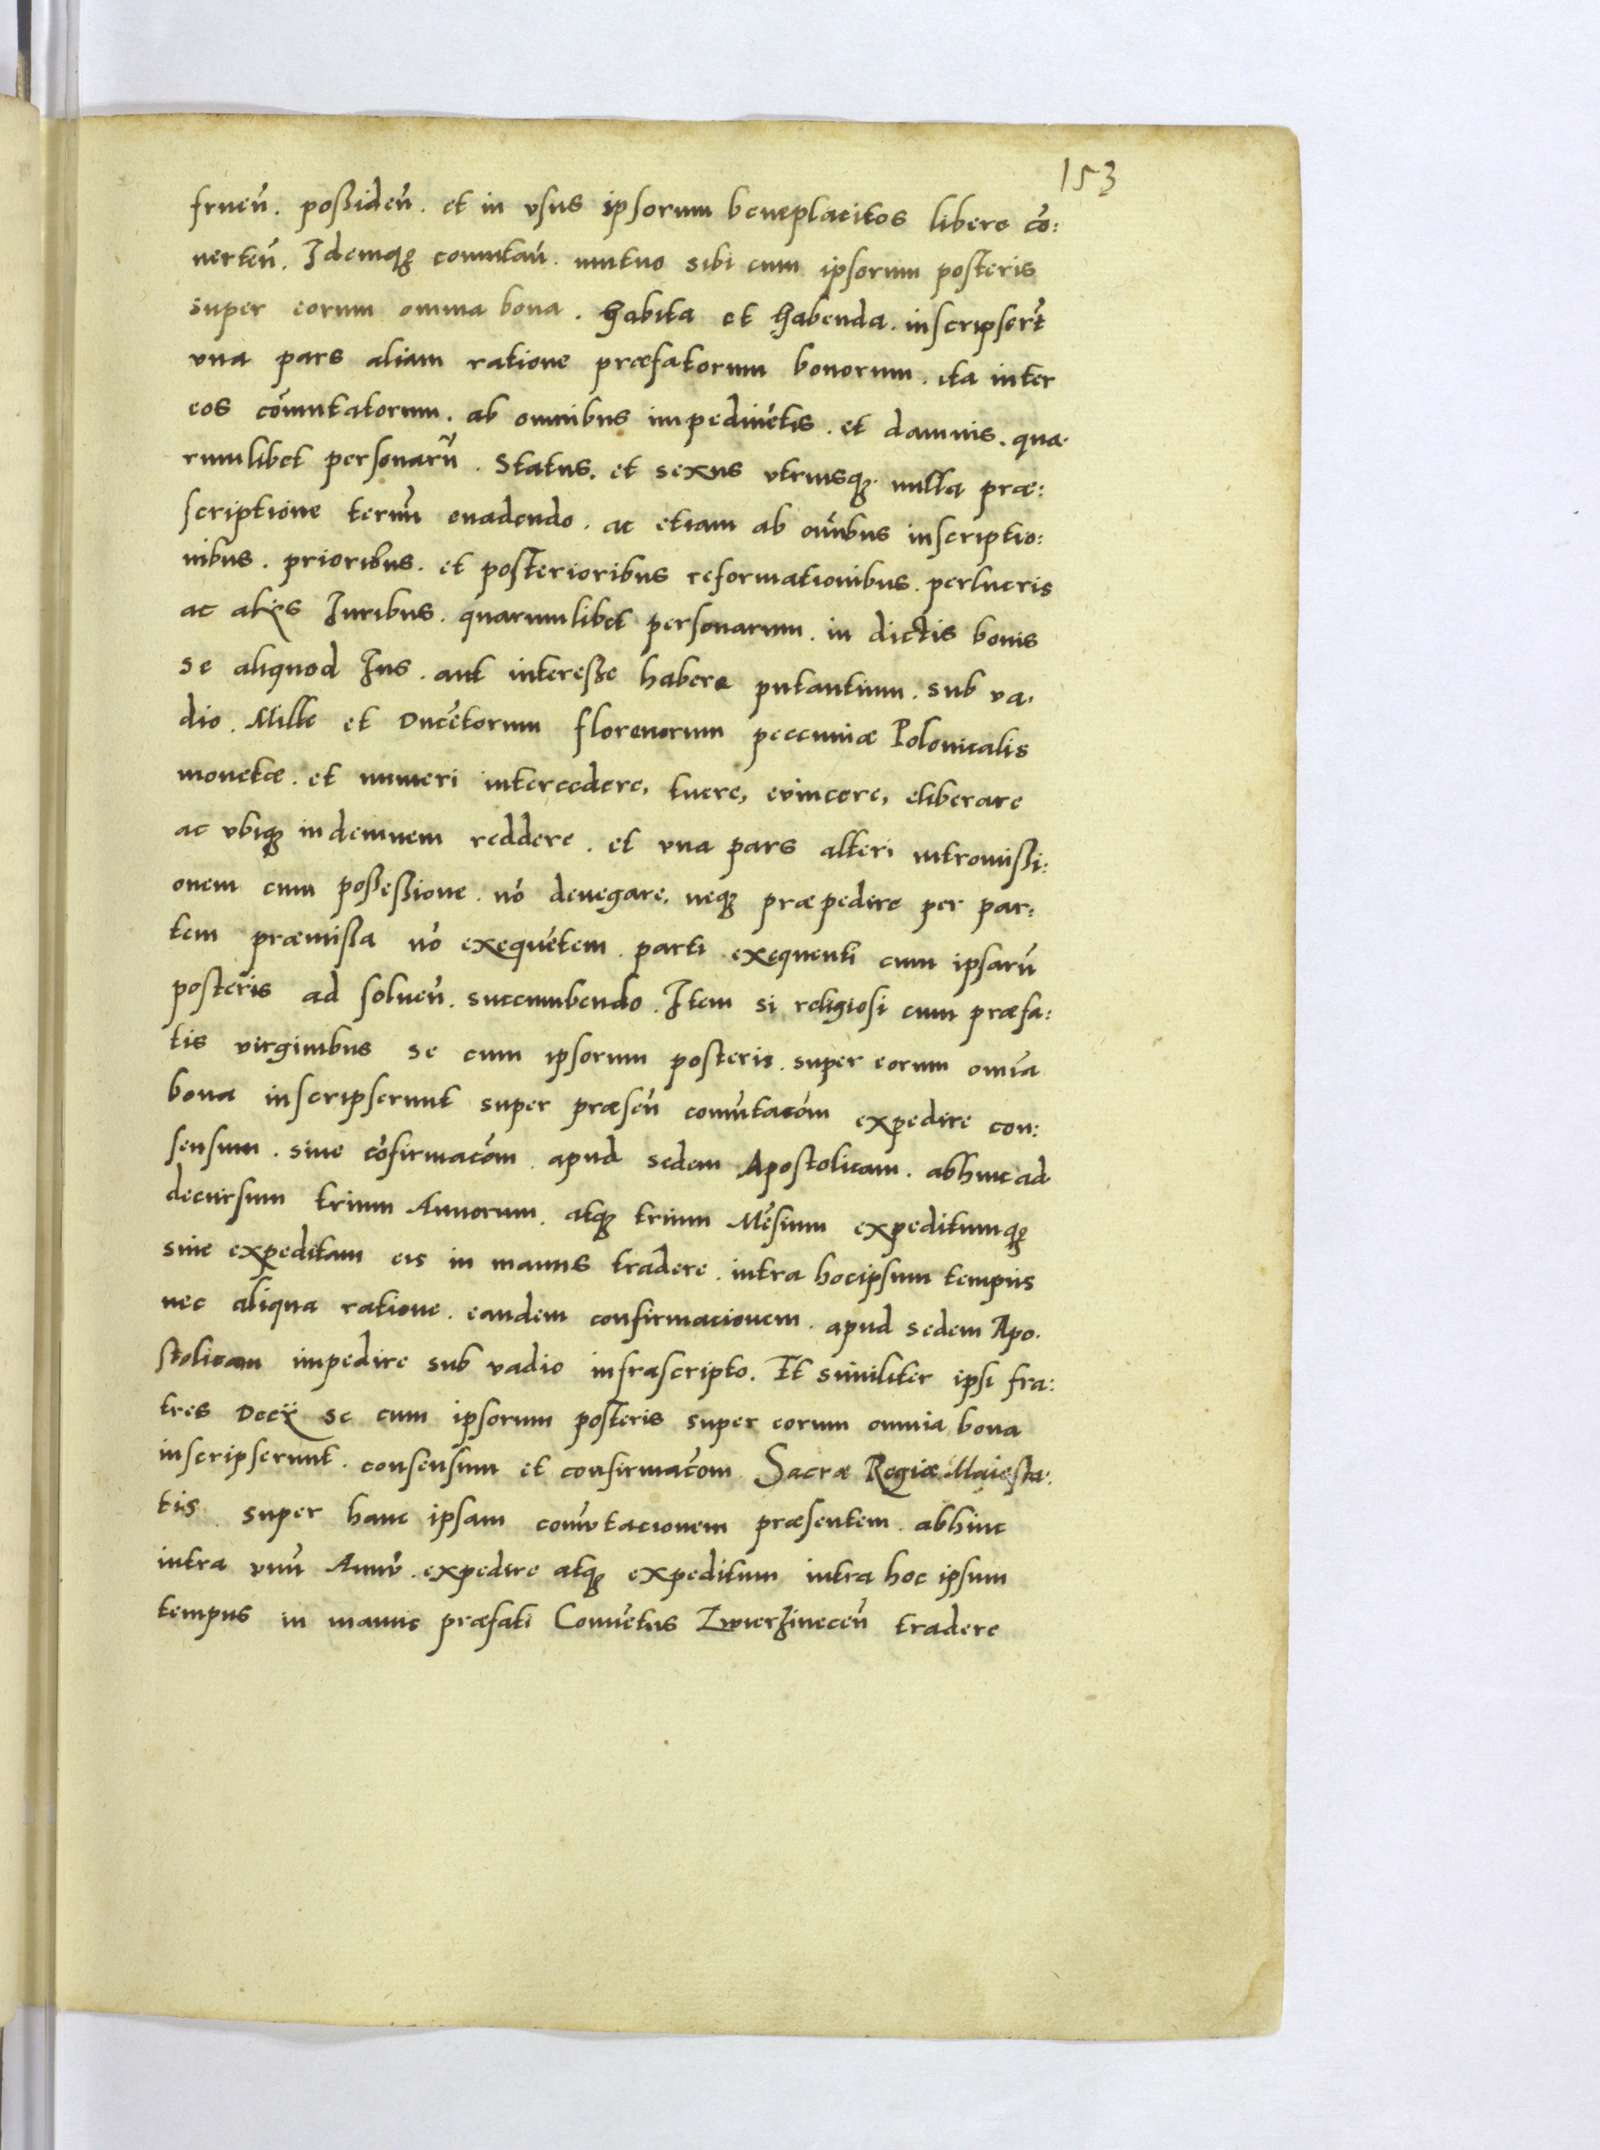 153
fruen̄. possiden̄. et in vsus ipsorum beneplacitos libere cō:
uerten̄. Idemq₃ comutan̄. mutuo sibi cum ipsorum posteris
super eorum omnia bona. habita et habenda. inscripsert̄
vna pars aliam ratione præfatorum bonorum. ita inter
eos cōmutatorum. ab omnibus impedimētis. et damnis. qua.
rumlibet personarū. Status. et sexus vtriusq₃. nulla præ:
scriptione termī euadendo. ac etiam ab oībus inscriptio:
nibus. prioribus. et posterioribus reformationibus. perlucris
ac alÿs Iuribus. quarumlibet personarum. in dictis bonis
se aliquod Ius. aut interesse habere putantium. sub va.
dio. Mille et Ducētorum florenorum peccuniæ Polonicalis
monetæ. et numeri intercedere, tuere, euincere, eliberare
ac vbiq₃ indemnem reddere. et vna pars alteri intromissi:
onem cum possessione. nō denegare. neq₃ præpedire per par:
tem præmissa nō exequētem. parti exequenti cum ipsarū
posteris ad soluen̄. succumbendo. Item si religiosi cum præfa:
tis virginibus se cum ipsorum posteris. super eorum omīa
bona inscripserunt super præsen̄ comūtacōm expedire con:
sensum. siue cōfirmacōm. apud sedem Apostolicam. abhinc ad
decursum trium Annorum. atq₃ trium Mēsium expeditumq₃
siue expeditam eis in manus tradere. intra hocipsum tempus
nec aliqua ratione. eandem confirmacionem. apud sedem Apo.
stolicam impedire sub vadio infrascripto. Et similiter ipsi fra:
tres Decÿ se cum ipsorum posteris super eorum omnia bona
inscripserunt. consensum et confirmacōm Sacræ Regiæ Maiesta.
tis super hanc ipsam comūtacionem præsentem. abhinc
intra vnū Annū. expedire atq₃ expeditum intra hoc ipsum
tempus in manus præfati Conuētus Zwierzinecen̄ tradere